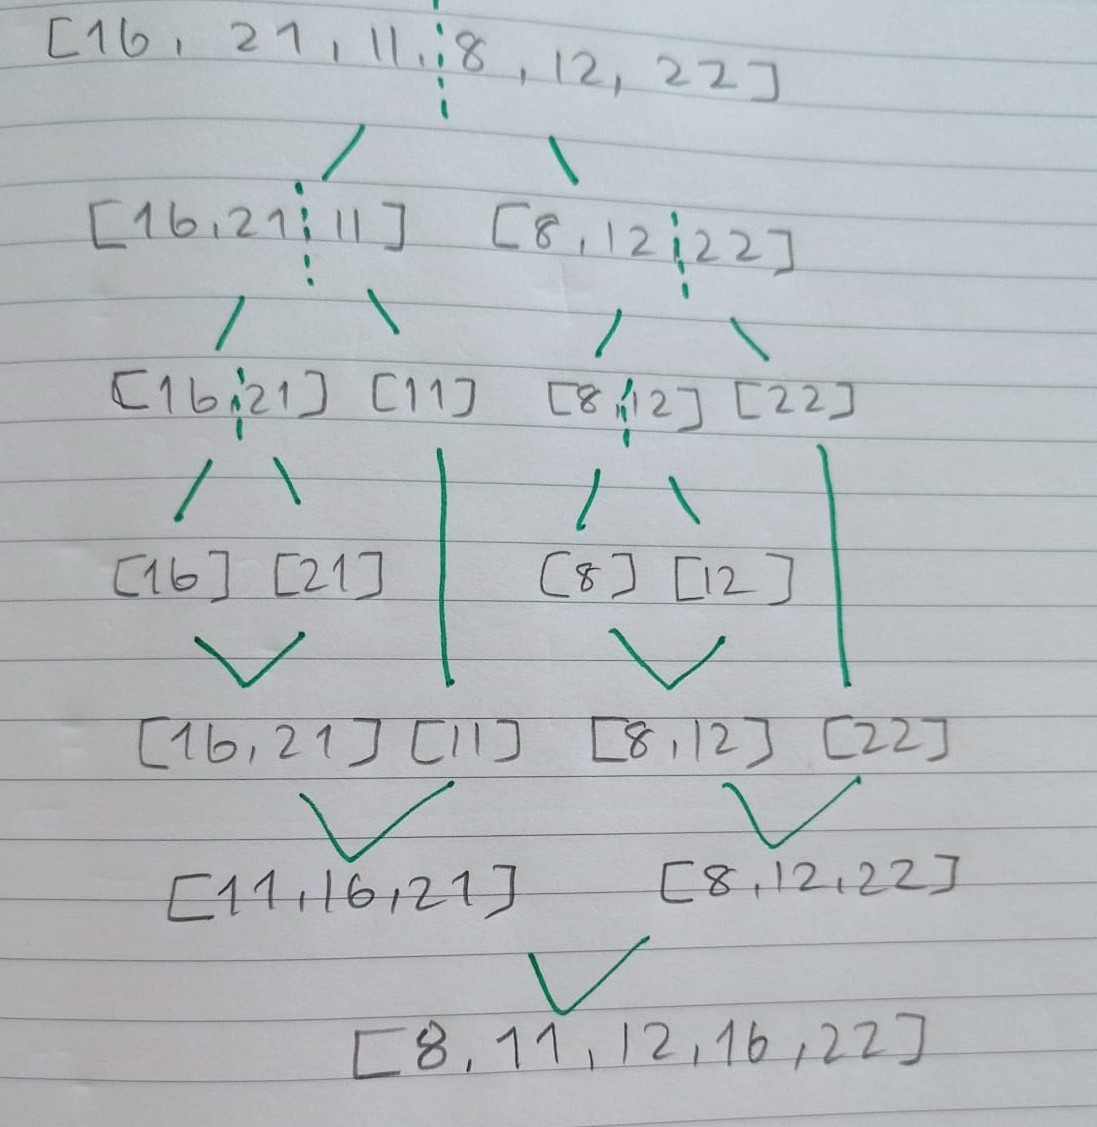 [16, 21, 11, 8, 12, 22]
[16,21 11] [8,12 22]
[16,21] [11] [8,12] [22]
[16] [21] [8] [12]
[16,21] [11] [8,12] [22]
[11,16,21] [8,12,22]
[8,11,12,16,22]